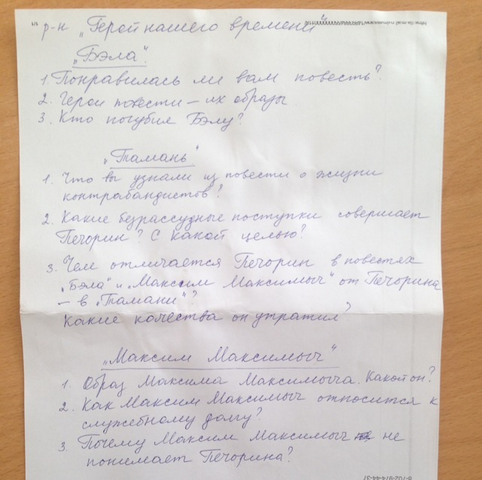 р-н „Герой нашего времени"
„Бэла".
1. Понравилась ли вам повесть?
2. Герои повести – их образы
3. Кто погубил Бэлу?
„Тамань"
1. Что вы узнали из повести о жизни
контрабандистов?
2. Какие безрассудные поступки совершает
Печорин? С какой целью?
3. Чем отличается Печорин в повестях
„Бэла" и „Максим Максимыч" от Печорина
– в „Тамани"?
Какие качества он утратил?
„Максим Максимыч"
1. Образ Максима Максимыча. Какой он?
2. Как Максим Максимыч относится к
служебному долгу?
3 Почему Максим Максимыч не
понимает Печорина?